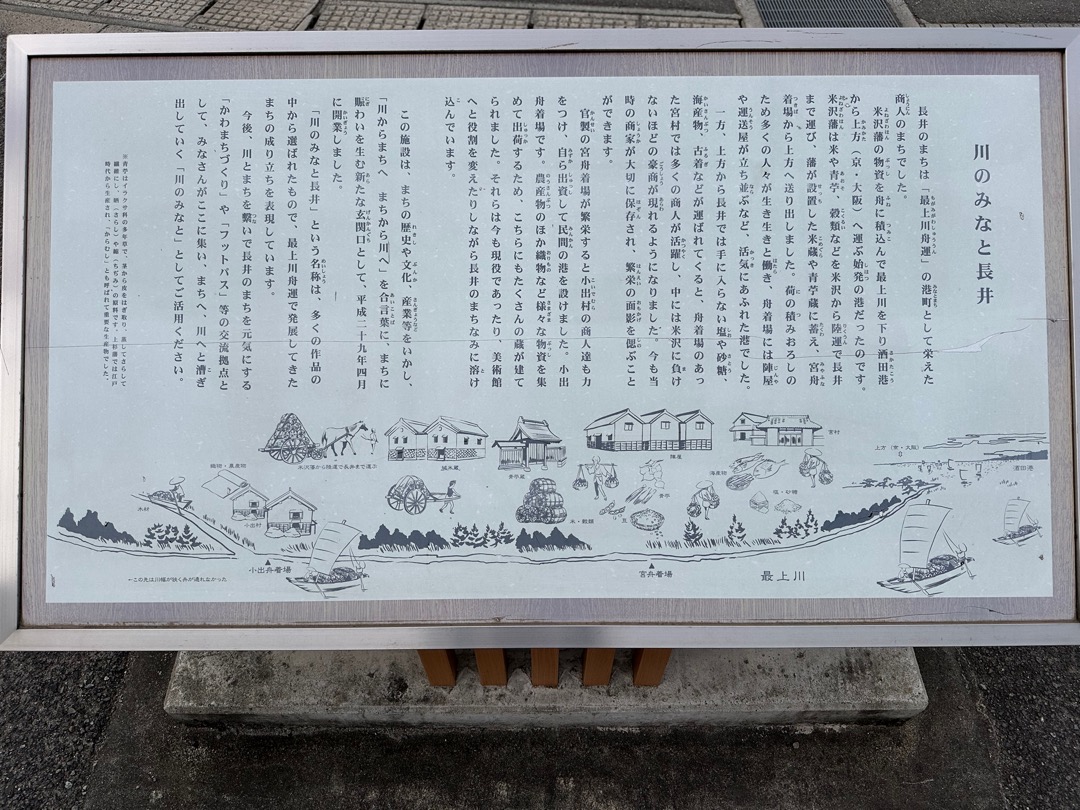 川のみなと長井
長井のまちは「最上川舟運」の港町として栄えた
商人のまちでした。
米沢藩の物資を舟に積込んで最上川を下り酒田港
から上方（京・大阪）へ運ぶ始発の港だったのです。
米沢藩は米や青苧、穀類などを米沢から陸運で長井
まで運び、藩が設置した米蔵や青苧蔵に蓄え、宮舟
着場から上方へ送り出しました。荷の積みおろしの
ため多くの人々が生き生きと働き、舟着場には陣屋
や運送屋が立ち並ぶなど、活気にあふれた港でした。
一方、上方から長井では手に入らない塩や砂糖、
海産物、古着などが運ばれてくると、舟着場のあっ
た宮村では多くの商人が活躍し、中には米沢に負け
ないほどの豪商が現れるようになりました。今も当
時の商家が大切に保存され、繁栄の面影を偲ぶこと
ができます。
官製の宮舟着場が繁栄すると小出村の商人達も力
をつけ、自ら出資して民間の港を設けました。小出
舟着場です。農産物のほか織物など様々な物資を集
めて出荷するため、こちらにもたくさんの蔵が建て
られました。それらは今も現役であったり、美術館
へと役割を変えたりしながら長井のまちなみに溶け
込んでいます。
この施設は、まちの歴史や文化、産業等をいかし、
「川からまちへ　まちから川へ」を合言葉に、まちに
賑わいを生む新たな玄関口として、平成二十九年四月
に開業しました。
「川のみなと長井」という名称は、多くの作品の
中から選ばれたもので、最上川舟運で発展してきた
まちの成り立ちを表現しています。
今後、川とまちを繋いで長井のまちを元気にする
「かわまちづくり」や「フットパス」等の交流拠点と
して、みなさんがここに集い、まちへ、川へと漕ぎ
出していく「川のみなと」としてご活用ください。
※青苧はイラクサ科の多年草で、茎から皮をはぎ取り、蒸してさらして
繊維にし、晒（さらし）や縮（ちぢみ）の原料です。上杉藩では江戸
時代から生産され、「からむし」とも呼ばれて重要な生産物でした。
米沢藩から陸運で長井まで運ぶ
織物・農産物
木材
小出村
籾米蔵
青苧蔵
陣屋
宮村
米・穀類
豆
青苧
海産物
塩・砂糖
上方（京・大阪）
酒田港
小出舟着場
宮舟着場
最上川
←この先は川幅が狭く舟が通れなかった